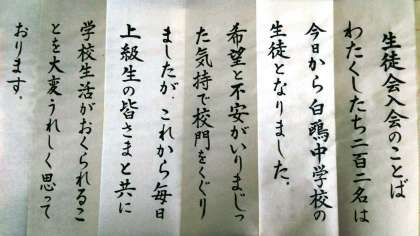 生徒会入会のことば
わたくしたち二百二名は
今日から白鴎中学校の
生徒となりました。
希望と不安がいりまじっ
た気持で校門をくぐり
ましたが、これから毎日
上級生の皆さまと共に
学校生活がおくられるこ
とを大変うれしく思って
おります。